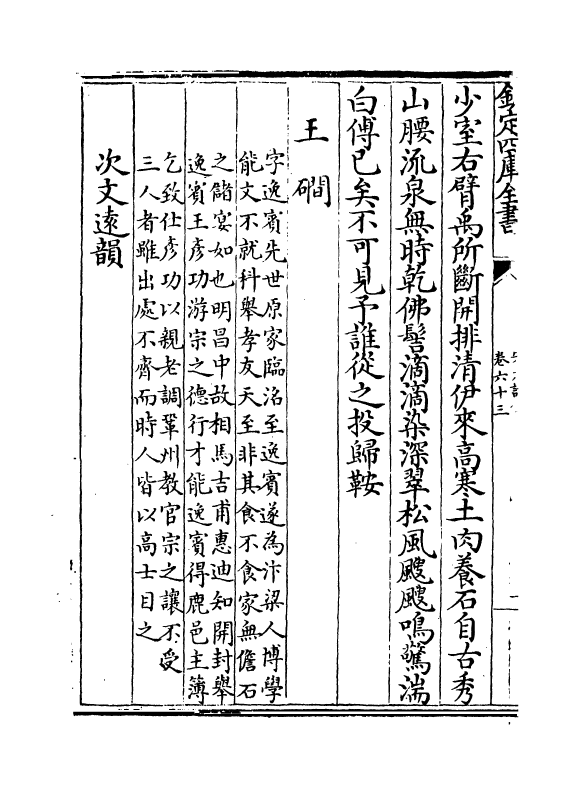 欽定四庫全書
卷六十三
少室右臂禹所斷開排清伊來高寒土肉養石自古秀
山腰流泉無時乾佛髻滴滴染深翠松風颼颼鳴驚湍
白傅已矣不可見予誰從之投歸鞍
王磵
字逸賓先世原家臨洺至逸賓遂為汴梁人博學
能文不就科舉孝友天至非其食不食家無儋石
之儲宴如也明昌中故相馬吉甫惠迪知開封舉
逸賓王彥功游宗之德行才能逸賓得鹿邑主簿
乞致仕彥功以親老調鞏州教官宗之讓不受
三人者雖出處不齊而時人皆以高士目之
次文遠韻